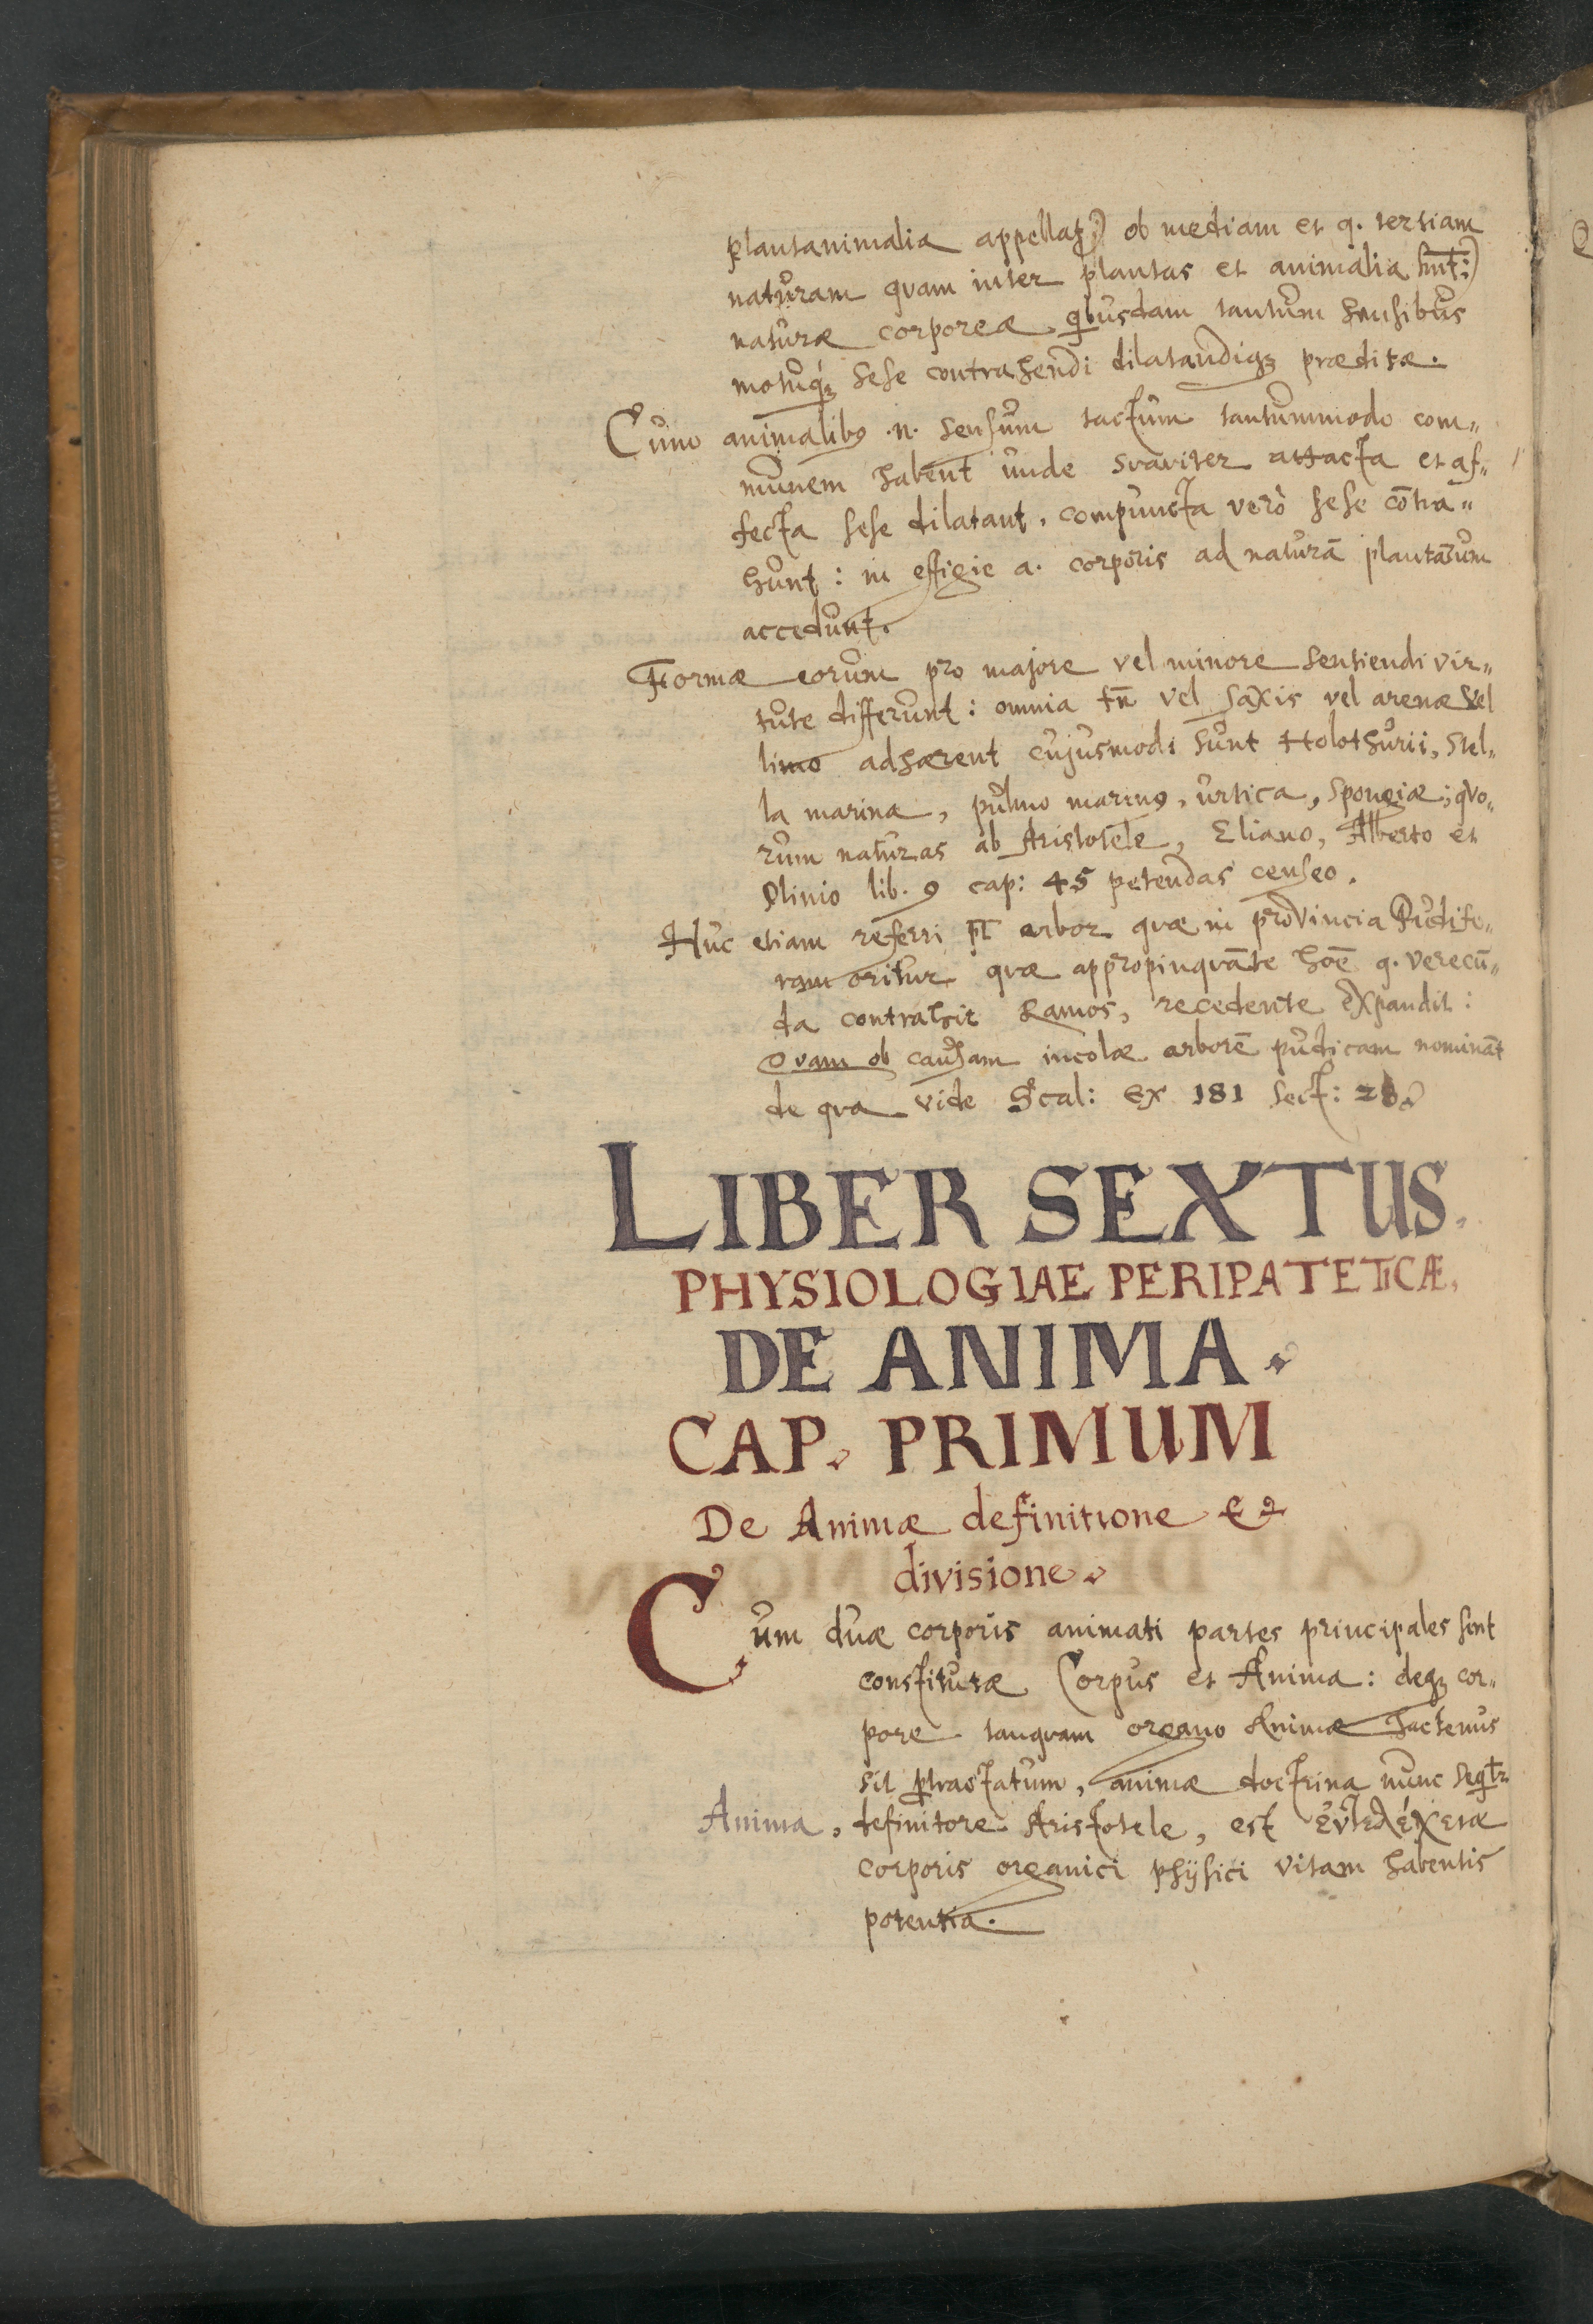 plantanimalia appellatꝫ) ob mediam et q. tertiam
naturam quam inter plantas et animalia hn̄t:)
naturæ corporeæ qbusdam tantum sensibus
motuqꝫ sese contrahendi dilatandiqꝫ præditæ.
Cum animalibꝰ .n. sensum tactum tantummodo com„
munem habent unde suaviter attacta et af„
fecta sese dilatant, compuncta verò sese cōtra„
hunt: in effigie a. corporis ad naturā plantarum
accedunt.
Formæ eorum pro majore vel minore sentiendi vir„
tute differunt: omnia tn̄ vel saxis vel arenæ vel
limo adhærent cujusmodi sunt Holothurii, Stel„
la marina, pulmo marinꝰ, urtica, spongiæ; quo„
rum naturas ab Aristotele, Eliano, Alberto et
Plinio lib. 9 cap: 45 petendas censeo.
Huc etiam referri pt̄ arbor quæ in provincia Pudife„
ram oritur quæ appropinquāte hoīe q. verecū„
da contrahit Ramos, recedente expandit:
Quam ob causam incolæ arborē pudicam nomināt
de qua vide Scal: Ex 181 sect: 28
LIBER SEXTUS.
PHYSIOLOGIAE PERIPATETICÆ.
DE ANIMA.
CAP. PRIMUM
De Animæ definitione &
divisione.
Cum duæ corporis animati partes principales sint
constitutæ Corpus et Anima: deqꝫ cor„
pore tanquam organo Animæ hactenus
sit ptractatum, animæ doctrina nunc seqtr
Anima, definitore Aristotele, est ἐντελέχεια
corporis organici physici vitam habentis
potentia.